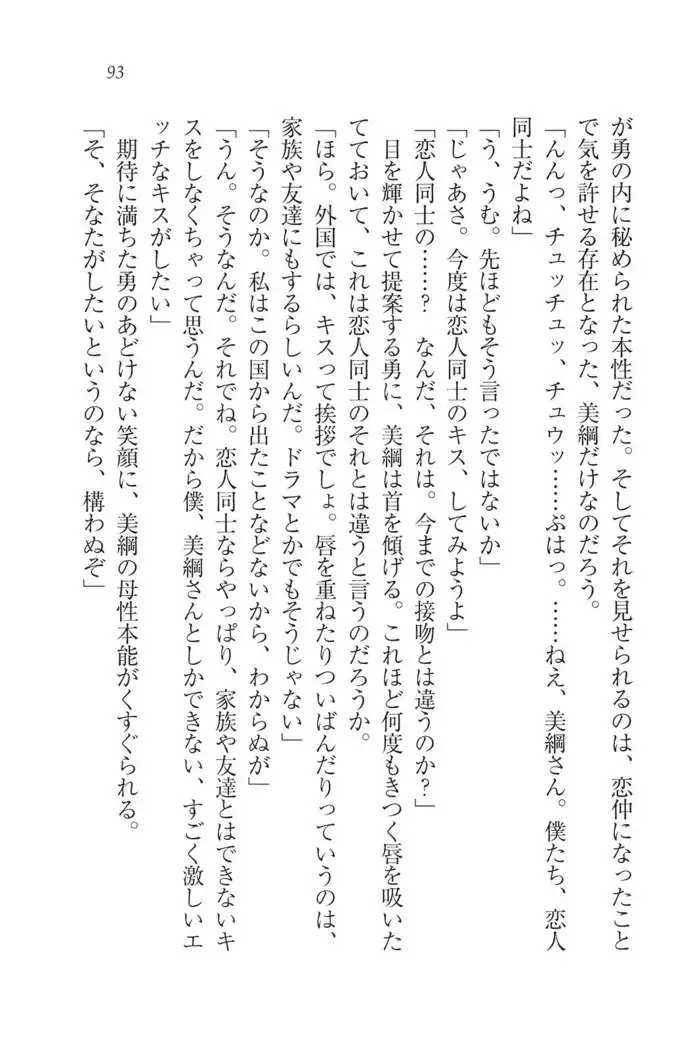 93
が勇の内に秘められた本性だった。そしてそれを見せられるのは、恋仲になったこと
で気を許せる存在となった、美綱だけなのだろう。
「んんっ、チュッチュッ、チュウッ……ぷはっ。……ねえ、美綱さん。僕たち、恋人
同士だよね」
「う、うむ。先ほどもそう言ったではないか」
「じゃあさ。今度は恋人同士のキス、してみようよ」
「恋人同士の……？　なんだ、それは。今までの接吻とは違うのか？」
目を輝かせて提案する勇に、美綱は首を傾げる。これほど何度もきつく唇を吸いた
てておいて、これは恋人同士のそれとは違うと言うのだろうか。
「ほら。外国では、キスって挨拶でしょ。唇を重ねたりついばんだりっていうのは、
家族や友達にもするらしいんだ。ドラマとかでもそうじゃない」
「そうなのか。私はこの国から出たことなどないから、わからぬが」
「うん。そうなんだ。それでね。恋人同士ならやっぱり、家族や友達とはできないキ
スをしなくちゃって思うんだ。だから僕、美綱さんとしかできない、すごく激しいエ
ッチなキスがしたい」
期待に満ちた勇のあどけない笑顔に、美綱の母性本能がくすぐられる。
「そ、そなたがしたいというのなら、構わぬぞ」